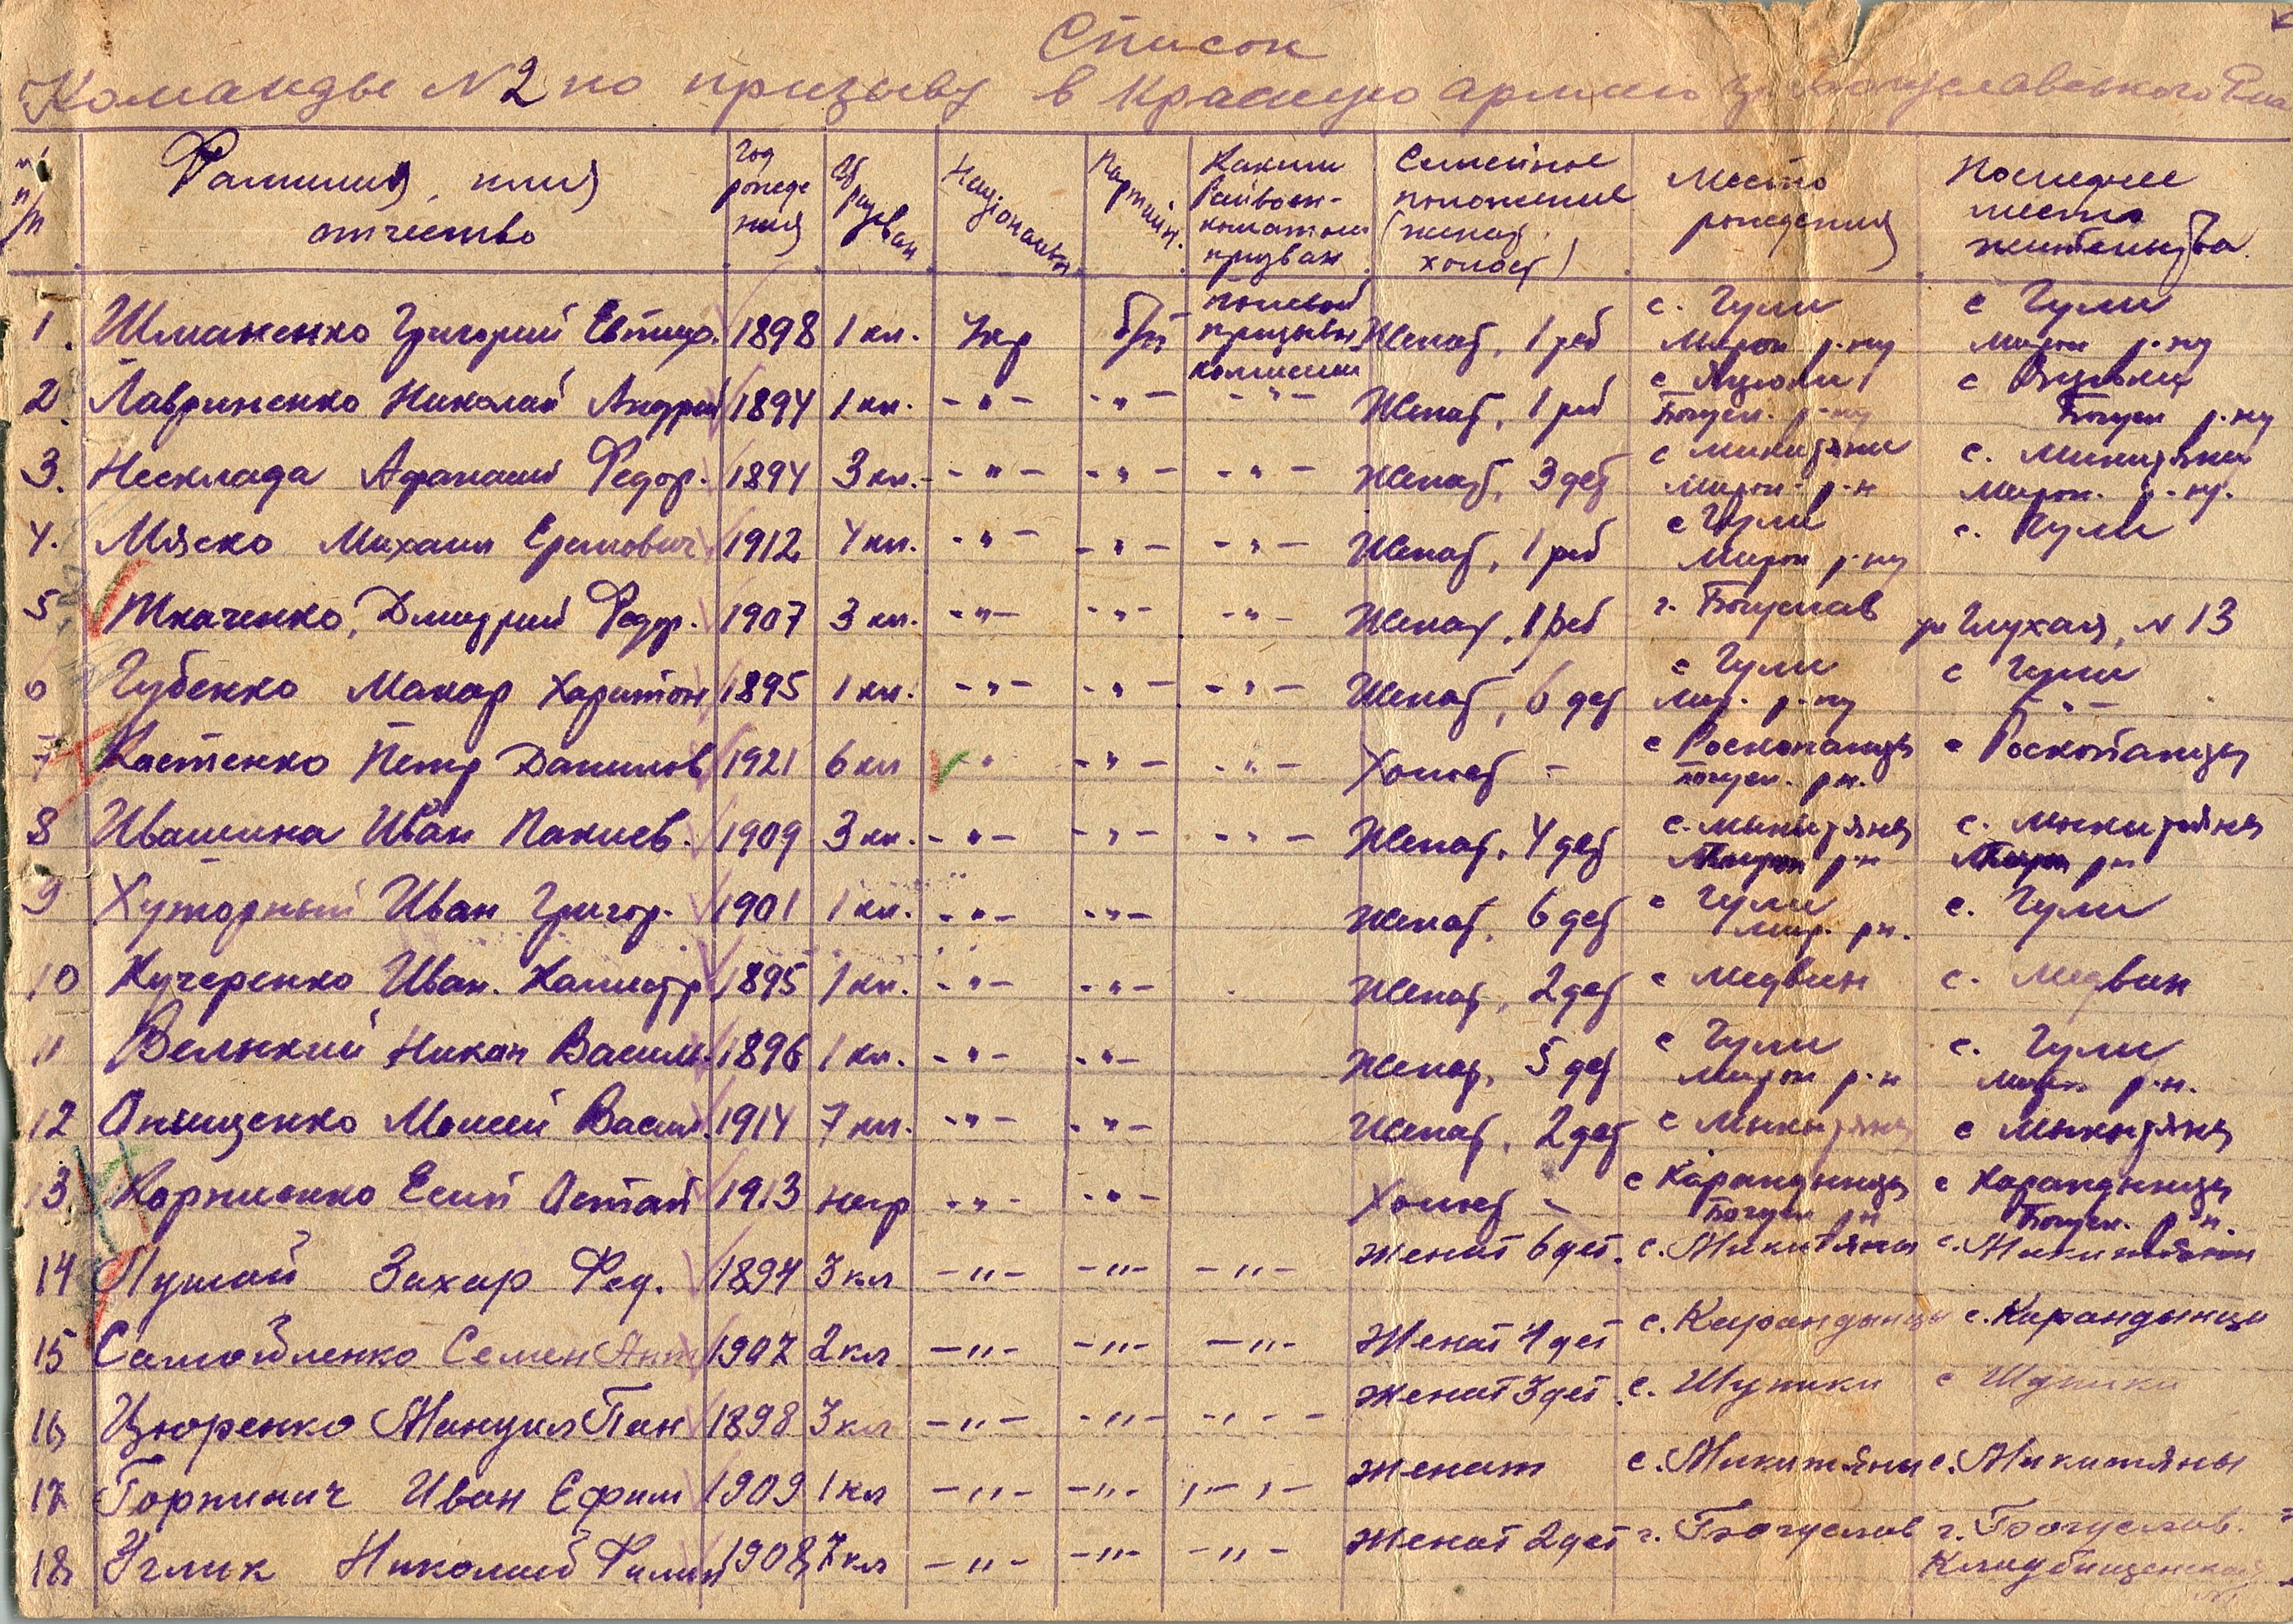 Список
Команды №2 по призыву в Красную армию Богуславського
п/п
Фамилия, имя отчество
Год рождения
Образован.
Национальн
Партийн.
Каким Райвоенкоматом призван
Семейное положение (женат, холост)
Место рождения
Последнее место жительства
1. Шманенко Григорий 1898 1 кл. Укр б/п полевой призывн комиссии Женат, 1 реб с. Гули Мирон р-ну с Гули Мирон р-ну
2. Лавриненко Николай Андрей 1894 1 кл. -"- -"- -"- Женат, 1 реб с Богусл. р-ну с Богусл р-ну
3. Несклада Афанасий Федор. 1894 3 кл. -"- -"- -"- Женат, 3 дет с Микитяни Мирон. р-н с. Микитяни Мирон. р-ну.
4. Мяско Михаил Еремович 1912 4 кл. -"- -"- -"- Женат, 1 реб с Гули Мирон р-ну с. Гули
5 Ткаченко, Дмитрий Федор. 1907 3 кл. -"- -"- -"- Женат, 1 реб г. Богуслав ул Глухая, №13
6 Губенко Макар Харитон 1895 1 кл. -"- -"- -"- Женат, 6 дет с Гули Мир. р-ну с Гули -"-
7 Костенко Петр Данилов 1921 6 кл " -"- -"- Холост - с Роскопанцы Богусл. рн. с Роскопанцы
8 Ивашина Иван 1909 3 кл. -"- -"- -"- Женат, 4 дет с. Мыкытяны Мирон р-н с. Мыкитяны Мирон рн
9 Хуторный Иван Григор. 1901 1 кл. -"- -"- Женат, 6 дет с Гули Мир. рн. с. Гули
10 Кучеренко Иван. Калистр 1895 1 кл. -"- -"- Женат, 2 дет с Медвин с. Медвин
11 Велький Никон Васил. 1896 1 кл. -"- -"- Женат, 5 дет с Гули Мирон р-н с. Гули Мирон р-н.
12 Онищенко Моисей Васил. 1914 7 кл. -"- -"- Женат, 2 дет с Мыкытяны с Мыкытяны
13. Корниенко Остап 1913 негр -"- -"- Холост - с Карандынцы Богусл рн с Карандынцы Богусл. р-н.
14 Захар Фед. 1894 3 кл -"- -"- -"- Женат 6 дет. с. Микитяны с. Микитяны
15 Самойленко Семен Ант 1907 2 кл -"- -"- -"- Женат 4 дет с. Карандынцы с. Карандынци
16 Цюренко Мануил Пан 1898 3 кл -"- -"- -"- Женат 3 дет. с. Шупики с Шупики
17 Горпинич Иван Ефим 1909 1 кл -"- -"- -"- Женат с. Микитяны с. Микитяны
18 Углик Николай Филип 1908 7 кл -"- -"- -"- Женат 2 дет г. Богуслав г. Богуслав. Кладбищенская